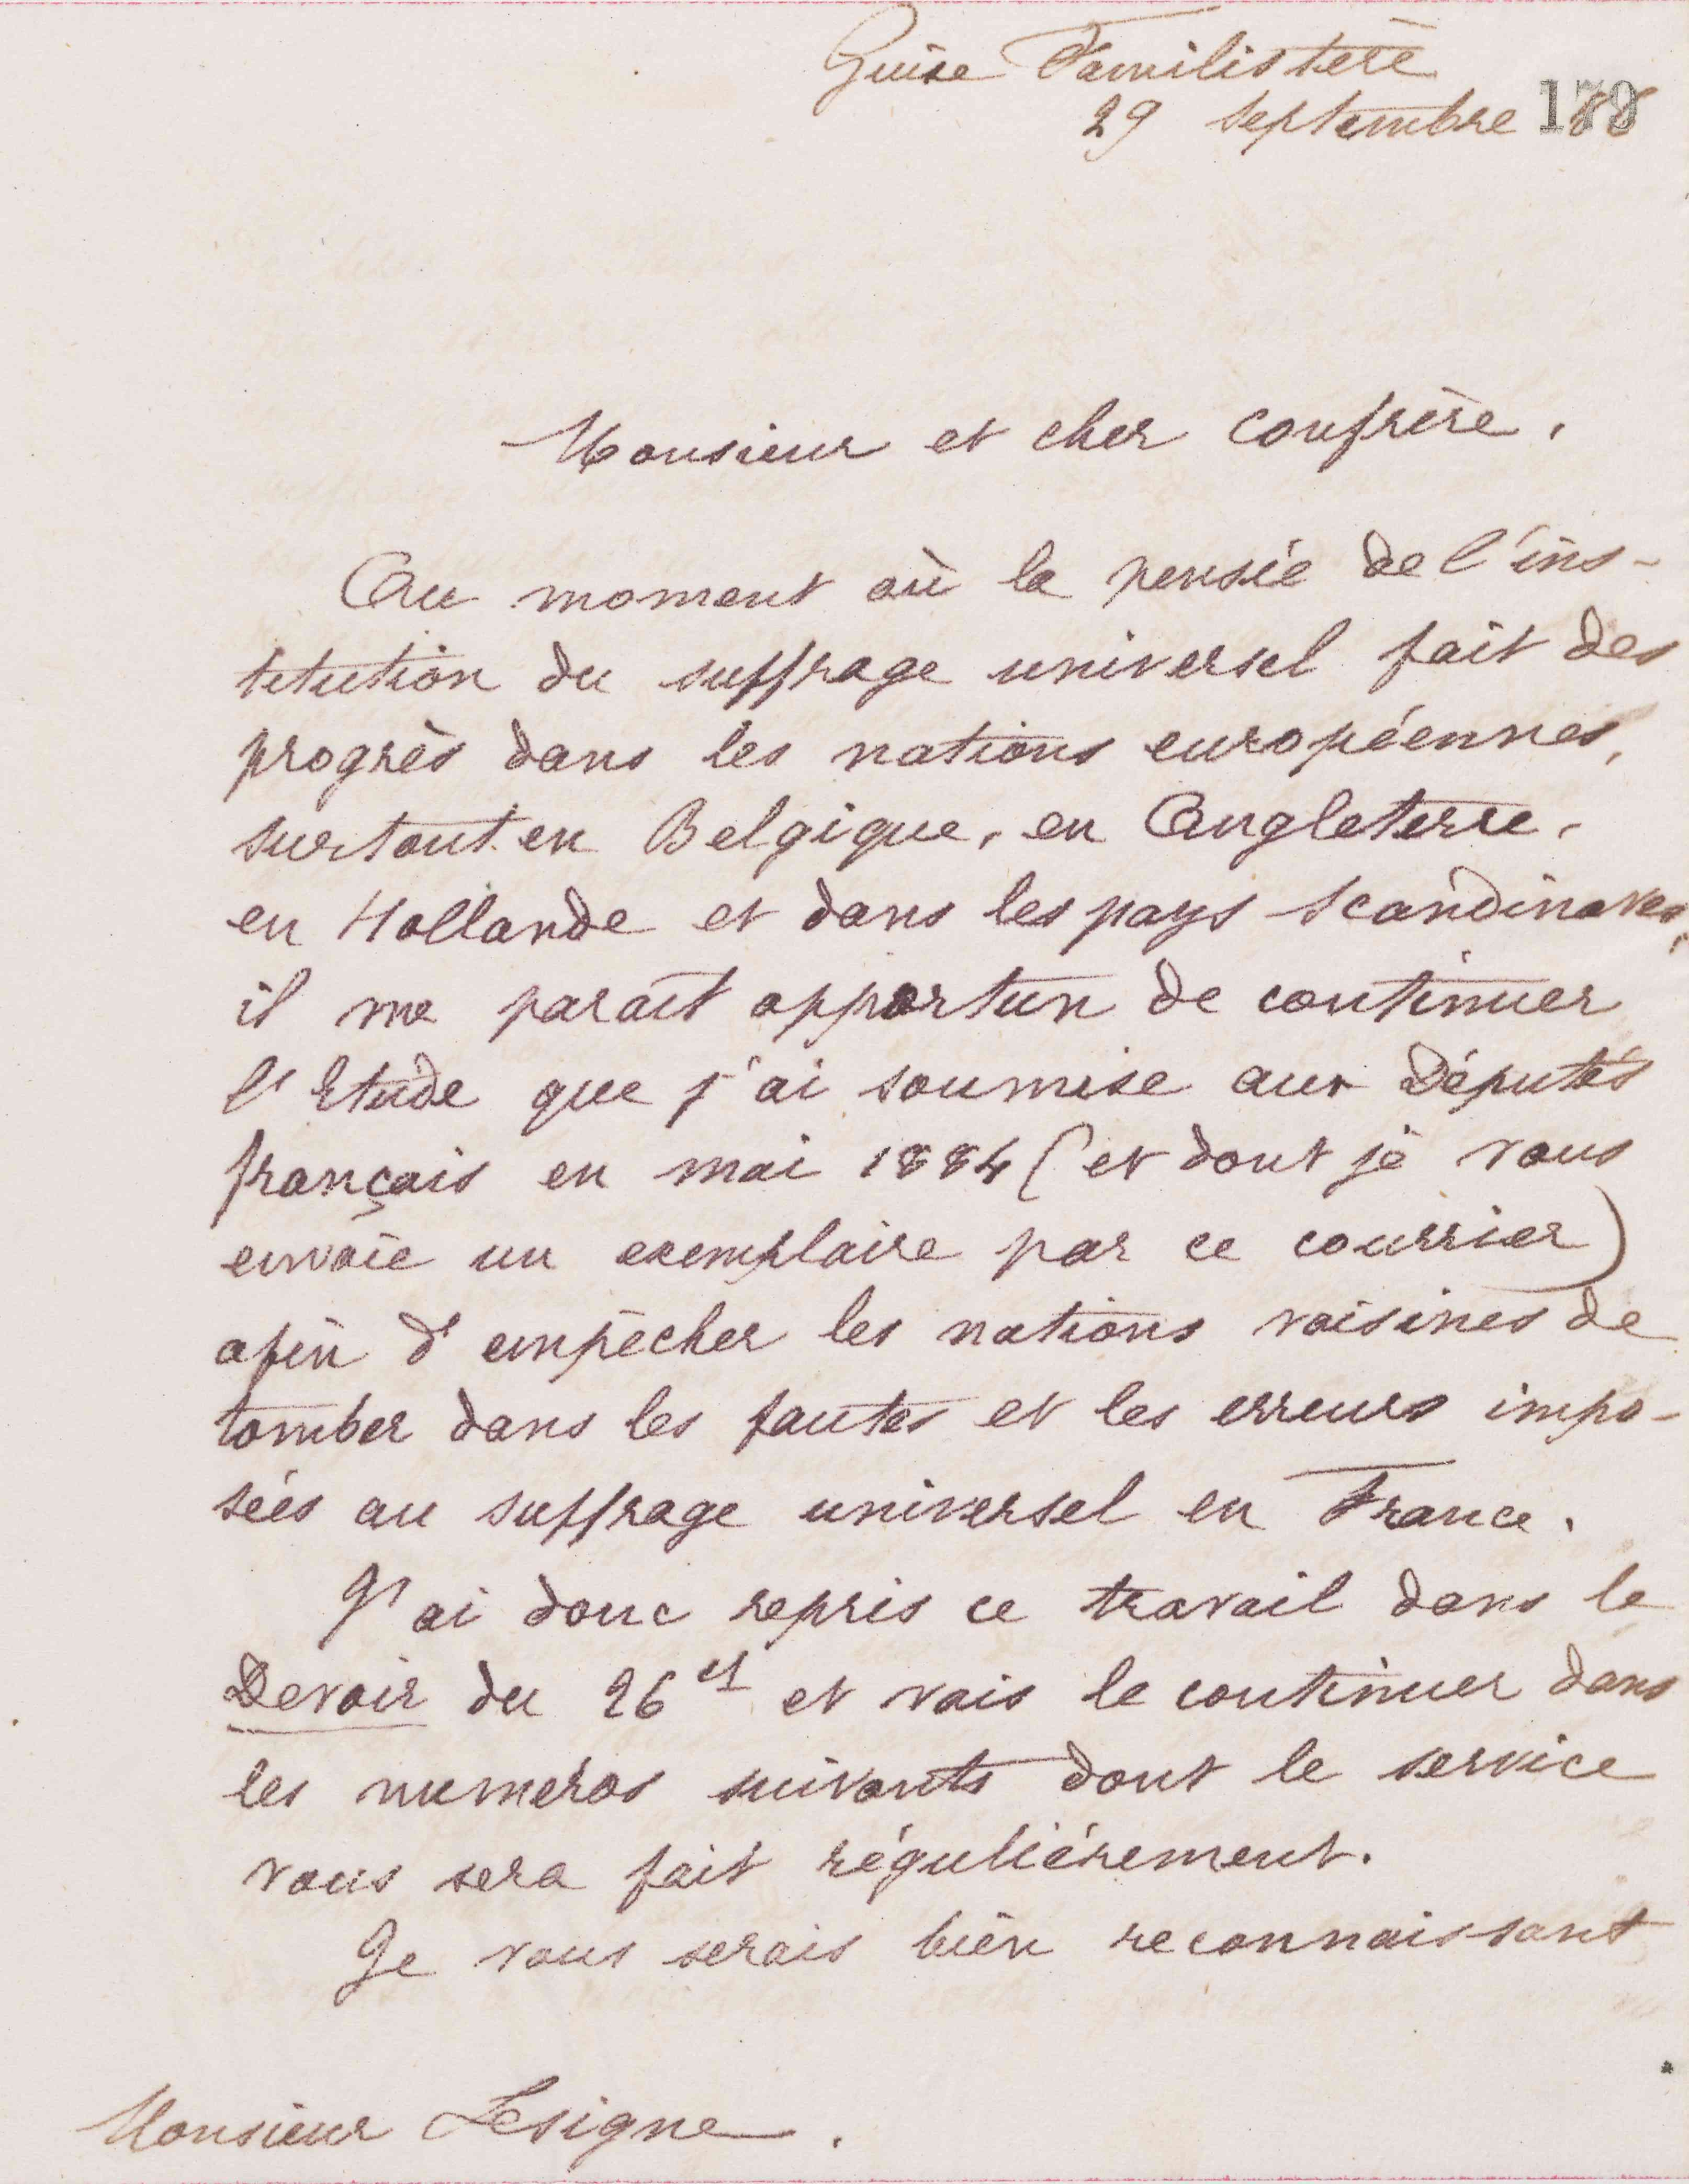 Guise Familistère
29 septembre 86
179
Monsieur et cher confrère,
Au moment où la pensée de l'ins-
titution du suffrage universel fait des
progrès dans les nations européennes,
surtout en Belgique, en Angleterre,
en Hollande et dans les pays scandinaves,
il me paraît opportun de continuer
l'Etude que j'ai soumise aux Députés
français en mai 1884 (et dont je vous
envoie un exemplaire par ce courrier)
afin d'empêcher les nations voisines de
tomber dans les fautes et les erreurs impo-
sées au suffrage universel en France.
J'ai donc repris ce travail dans le
Devoir du 26 ct et vais le continuer dans
les numeros suivants dont le service
vous sera fait régulièrement.
Je vous serais bien reconnaissant
Monsieur Lesigne.